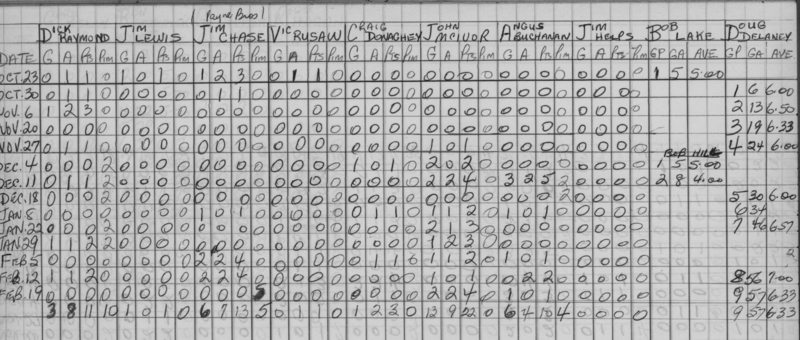 Payne Bros
DICK RAYMOND JIM LEWIS JIM CHASE VIC RUSAW CRAIG DONAGHEY JOHN MCIVOR ANGUS BUCHANAN JIM HELPS BOB LAKE DOUG DELANEY
DATE G A Pts Pim G A Pts Pim G A Pts Pim G A Pts Pim G A Pts Pim G A Pts Pim G A Pts Pim G A Pts Pim GP GA AVE GP GA AVE
OCT.23 0 1 1 0 1 0 1 0 1 2 3 0 0 1 1 0 0 0 0 0 0 0 0 0 0 0 0 0 0 0 0 0 1 5 5.00
OCT.30 0 1 1 0 0 0 0 0 0 1 1 0 0 0 0 0 0 0 0 0 0 0 0 0 0 0 0 0 0 0 0 0 1 6 6.00
NOV.6 1 2 3 0 0 0 0 0 0 0 0 0 0 0 0 0 0 0 0 0 0 0 0 0 0 0 0 0 0 0 0 0 2 13 6.50
NOV.20 0 0 0 0 0 0 0 0 0 0 0 0 0 0 0 0 0 0 0 0 0 0 0 0 0 0 0 0 0 0 0 0 3 19 6.33
NOV.27 0 1 1 0 0 0 0 0 0 0 0 0 0 0 0 0 0 0 0 0 1 0 1 0 0 0 0 0 0 0 0 0 4 24 6.00
DEC.4 0 0 0 2 0 0 0 0 0 0 0 0 0 0 0 0 1 0 1 0 2 0 2 0 0 0 0 0 0 0 0 0 1 5 5.00
DEC.11 0 1 1 2 0 0 0 0 0 0 0 0 0 0 0 0 0 0 0 0 2 2 4 0 3 2 5 2 0 0 0 0 2 8 4.00
DEC.18 0 0 0 2 0 0 0 0 0 0 0 0 0 0 0 0 0 0 0 0 0 0 0 0 0 0 0 2 0 0 0 0 5 30 6.00
JAN.8 0 0 0 0 0 0 0 0 1 0 1 0 0 0 0 0 0 1 1 0 1 1 2 0 1 0 1 0 0 0 0 0 6 34
JAN.22 0 0 0 2 0 0 0 0 0 0 0 0 0 0 0 0 0 0 0 0 2 1 3 0 0 0 0 0 0 0 0 0 7 46 6.57
JAN.29 1 1 2 2 0 0 0 0 0 0 0 0 0 0 0 0 0 0 0 0 1 2 3 0 0 0 0 0 0 0 0 0
FEB.5 0 0 0 0 0 0 0 0 2 2 4 0 0 0 0 0 0 1 1 0 1 1 2 0 1 0 1 0 0 0 0 0
FEB.12 1 1 2 0 0 0 0 0 2 2 4 0 0 0 0 0 0 0 0 0 1 0 1 0 0 2 2 0 0 0 0 0 8 56 7.00
FEB.19 0 0 0 0 0 0 0 0 0 0 0 5 0 0 0 0 0 0 0 0 2 2 4 0 1 0 1 0 0 0 0 0 9 57 6.33
3 8 11 10 1 0 1 0 6 7 13 5 0 1 1 0 1 2 3 0 13 9 22 0 6 4 10 4 0 0 0 0 9 57 6.33